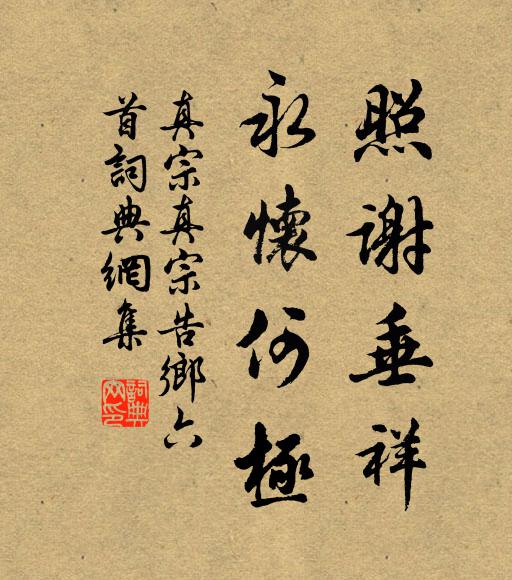 照谢垂祥
永懷何極
真宗真宗告鄉六
首詞典網集
詞典網印